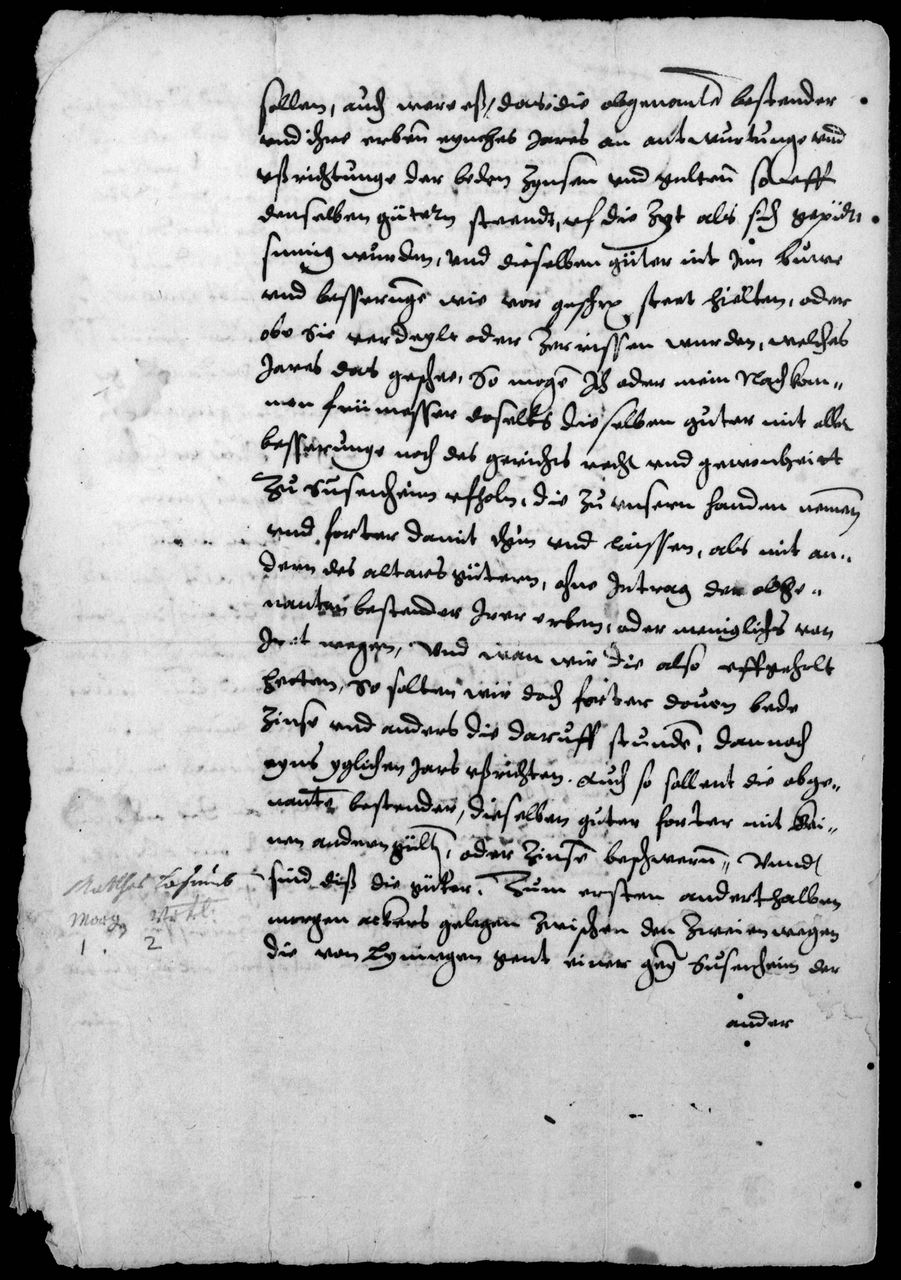 sollen, auch were eß, das die obgenante bestender
vnd ihre erben eynches Jares an antwurtunge vnd
vßrichtunge der beden Zynsen vnd gulten so vff
denselben gütern steendt, vf die Zyt als sich
sumig wurden, vnd dieselben güter nit Inn buwe
vnd besserunge wie vor geschr. steet hielten, oder
obe Sie verdeylt oder Zerrissen wurden, welches
Jares das geschee, So mogen Ich oder mein Nachkom-
men früimesser doselbs dieselben guter mit aller
besserunge noch des gerichts recht vnd gewonheitt
Zu Susenheim vfholn, die zu vnsern handen nemen
vnd forter damit thun vnd laissen, als mit an-
dern des altars gütern, ohne Intrag der obge-
nanten bestender Irer erben, oder meniglichs von
Irent wegen, Vnd wan wir die also vffgeholt
hetten, So solten wir doch forter douon bede
Zinse vnd anders die daruff stunden, dannoch
eyns yglichen Jars vßrichten. Auch so sollent die obge-
nante bestender, dieselben guter forter mit kei-
nen andern gülten, oder Zinse beschwern, Vnnd
sind diß die güter. Zum ersten anderthalben
morgen ackers gelegen Zwischen den Zweien wegen
die von Lyningen gent einer geg Susenheim der
ander
Matthes
Morg Vrtl.
1. 2